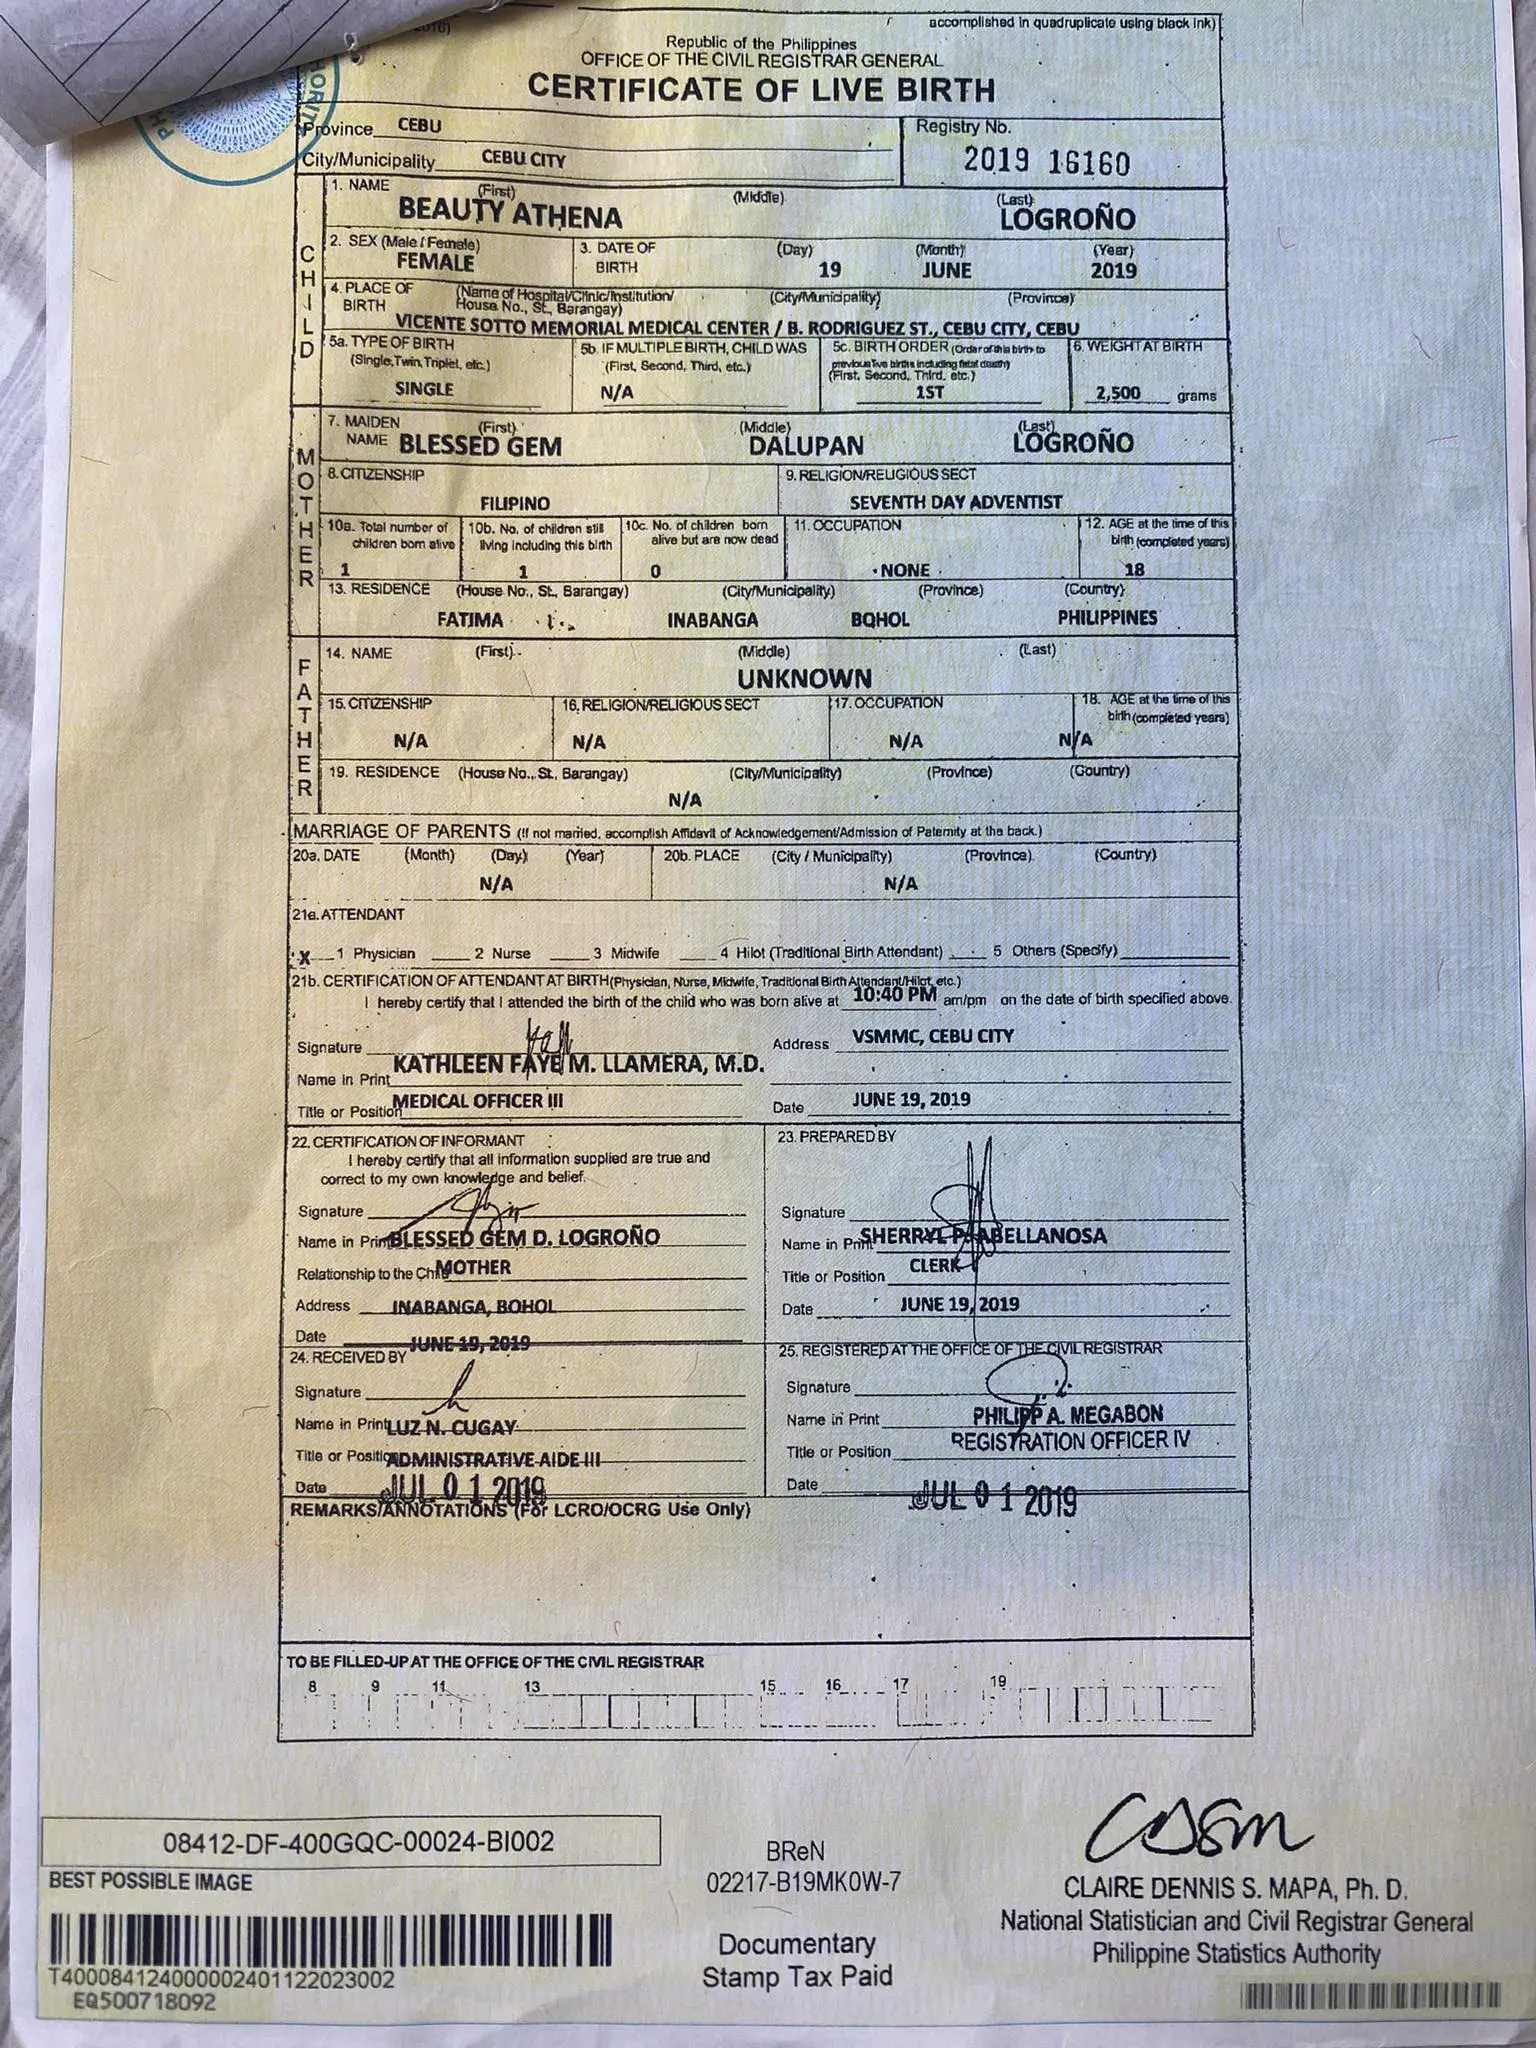 accomplished in quadruplicate using black ink)
Republic of the Philippines
OFFICE OF THE CIVIL REGISTRAR GENERAL
CERTIFICATE OF LIVE BIRTH
Province CEBU
Registry No.
City/Municipality CEBU CITY
2019 16160
CHILD
1. NAME (First) (Middle) (Last)
BEAUTY ATHENA LOGROÑO
2. SEX (Male / Female) 3. DATE OF BIRTH (Day) (Month) (Year)
FEMALE 19 JUNE 2019
4. PLACE OF BIRTH (Name of Hospital/Clinic/Institution/ House No., St., Barangay) (City/Municipality) (Province)
VICENTE SOTTO MEMORIAL MEDICAL CENTER / B. RODRIGUEZ ST., CEBU CITY, CEBU
5a. TYPE OF BIRTH (Single, Twin, Triplet, etc.) 5b. IF MULTIPLE BIRTH, CHILD WAS (First, Second, Third, etc.) 5c. BIRTH ORDER (Order of this birth to previous live births including fetal death) (First, Second, Third, etc.) 6. WEIGHT AT BIRTH
SINGLE N/A 1ST 2,500 grams
MOTHER
7. MAIDEN NAME (First) (Middle) (Last)
BLESSED GEM DALUPAN LOGROÑO
8. CITIZENSHIP 9. RELIGION/RELIGIOUS SECT
FILIPINO SEVENTH DAY ADVENTIST
10a. Total number of children born alive 10b. No. of children still living including this birth 10c. No. of children born alive but are now dead 11. OCCUPATION 12. AGE at the time of this birth (completed years)
1 1 0 NONE 18
13. RESIDENCE (House No., St., Barangay) (City/Municipality) (Province) (Country)
FATIMA INABANGA BOHOL PHILIPPINES
FATHER
14. NAME (First) (Middle) (Last)
UNKNOWN
15. CITIZENSHIP 16. RELIGION/RELIGIOUS SECT 17. OCCUPATION 18. AGE at the time of this birth (completed years)
N/A N/A N/A N/A
19. RESIDENCE (House No., St., Barangay) (City/Municipality) (Province) (Country)
N/A
MARRIAGE OF PARENTS (If not married, accomplish Affidavit of Acknowledgement/Admission of Paternity at the back.)
20a. DATE (Month) (Day) (Year) 20b. PLACE (City / Municipality) (Province) (Country)
N/A N/A
21a. ATTENDANT
X 1 Physician 2 Nurse 3 Midwife 4 Hilot (Traditional Birth Attendant) 5 Others (Specify)
21b. CERTIFICATION OF ATTENDANT AT BIRTH (Physician, Nurse, Midwife, Traditional Birth Attendant/Hilot, etc.)
I hereby certify that I attended the birth of the child who was born alive at 10:40 PM am/pm on the date of birth specified above.
Signature Address VSMMC, CEBU CITY
Name in Print KATHLEEN FAYE M. LLAMERA, M.D.
Title or Position MEDICAL OFFICER III Date JUNE 19, 2019
22. CERTIFICATION OF INFORMANT
I hereby certify that all information supplied are true and
correct to my own knowledge and belief.
Signature
Name in Print BLESSED GEM D. LOGROÑO
Relationship to the Child MOTHER
Address INABANGA, BOHOL
Date JUNE 19, 2019
23. PREPARED BY
Signature
Name in Print SHERRYL P. ABELLANOSA
Title or Position CLERK
Date JUNE 19, 2019
24. RECEIVED BY
Signature
Name in Print LUZ N. CUGAY
Title or Position ADMINISTRATIVE AIDE III
Date JUL 01 2019
25. REGISTERED AT THE OFFICE OF THE CIVIL REGISTRAR
Signature
Name in Print PHILIPP A. MEGABON
Title or Position REGISTRATION OFFICER IV
Date JUL 01 2019
REMARKS/ANNOTATIONS (For LCRO/OCRG Use Only)
TO BE FILLED-UP AT THE OFFICE OF THE CIVIL REGISTRAR
8 9 11 13 15 16 17 19
08412-DF-400GQC-00024-BI002
BEST POSSIBLE IMAGE
T400084124000002401122023002
EQ500718092
BReN
02217-B19MK0W-7
Documentary
Stamp Tax Paid
CLAIRE DENNIS S. MAPA, Ph. D.
National Statistician and Civil Registrar General
Philippine Statistics Authority